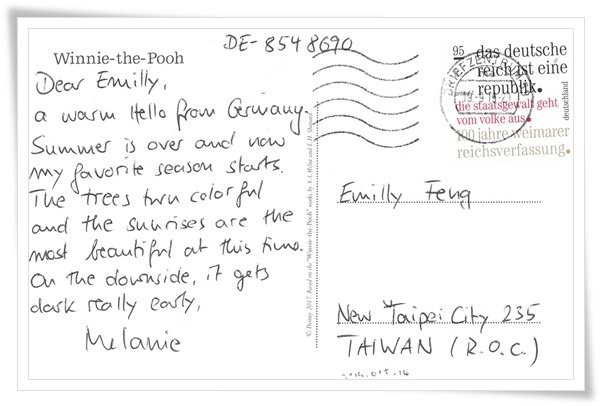 DE-8548690
Winnie-the-Pooh
Dear Emilly,
a warm Hello from Germany.
Summer is over and now
my favorite season starts.
The trees turn colorful
and the sunrises are the
most beautiful at this time.
On the downside, it gets
dark really early.
Melanie
95
das deutsche
reich ist eine
republik.
die staatsgewalt geht
vom volke aus.
100 jahre weimarer
reichsverfassung.
deutschland
BRIEFZENTRUM
Emilly Feng
New Taipei City 235
TAIWAN (R.O.C.)